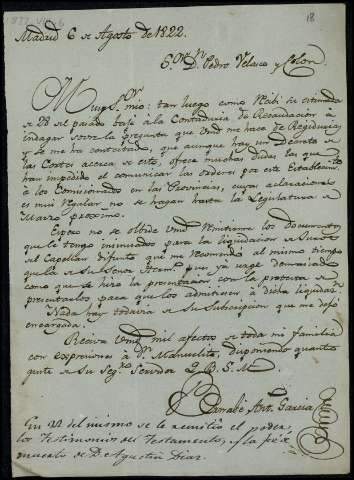 18
Madrid 6 de Agosto de 1822.
S.or D.n Pedro Velasco y Colon.
Muy S.or mio: tan luego como recibi su estimada
de 28 del pasado bajé à la Contaduria de Recaudacion à
indagar sobre la pregunta que Vmd me hace de Regidurias,
y se me ha contestado, que aunque hay un Decreto de
las Cortes acerca de esto, ofrece muchas dudas las que
han impedido el comunicar las ordenes por este Establecim.to
à los Comisionados en las Provincias, cuyas aclaraciones
es mui regular no se hagan hasta la Legislatura de
Marzo proximo.
Espero no se olvide Vmd remitirme los Documentos
que le tengo insinuados para la liquidacion de
del Capellan difunto que me recomendó al mismo tiempo
que la de su Señor pues ya urge demasiado
como que se hizo la presentacion con la protesta de
presentarlos para que los admitiesen à dicha liquidac.n
Nada hay todavia de su Subscripcion que me dejó
encargada.
Reciva Vmd mil afectos de toda mi familia
con expresiones à D.a Manuelita, disponiendo quanto
guste de su Seg.ro Servidor Q. B. S. M.
Bernabé Ant.o Garcia
En del mismo se le remitió el poder,
los Testimonios del Testamento, y la fé de
muerto de D. Agustin Diaz.